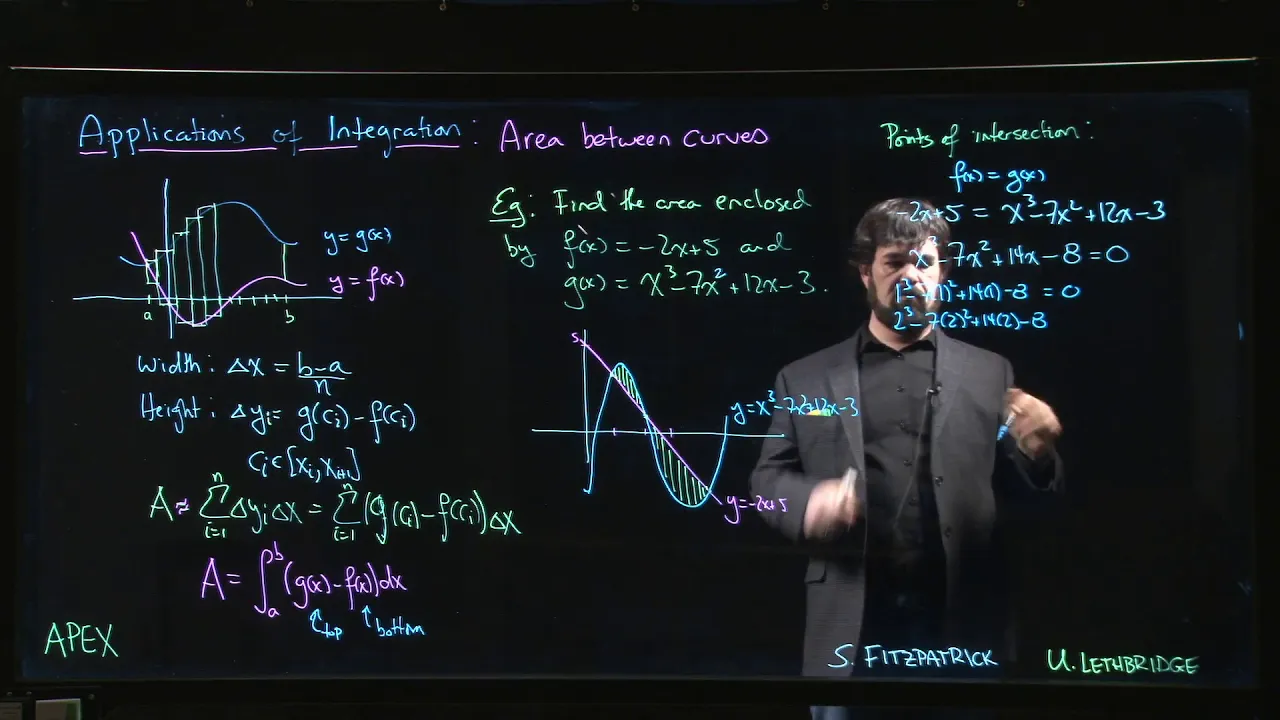 Applications of Integration: Area between curves
y = g(x)
y = f(x)
a
b
Width: Δx = b-a/n
Height: Δyᵢ = g(cᵢ) - f(cᵢ)
cᵢ ∈ [xᵢ, xᵢ₊₁]
A ≈ n∑i=1 Δyᵢ Δx = n∑i=1 (g(cᵢ) - f(cᵢ)) Δx
A = ∫ₐᵇ (g(x) - f(x)) dx
↑ top ↑ bottom
APEX
Eg: Find the area enclosed
by f(x) = -2x+5 and
g(x) = x³-7x²+12x-3.
5
y = x³-7x²+12x-3
y = -2x+5
Points of intersection:
f(x) = g(x)
-2x+5 = x³-7x²+12x-3
x³-7x²+14x-8=0
1³-7(1)²+14(1)-8 = 0
2³-7(2)²+14(2)-8
S. FITZPATRICK
U. LETHBRIDGE